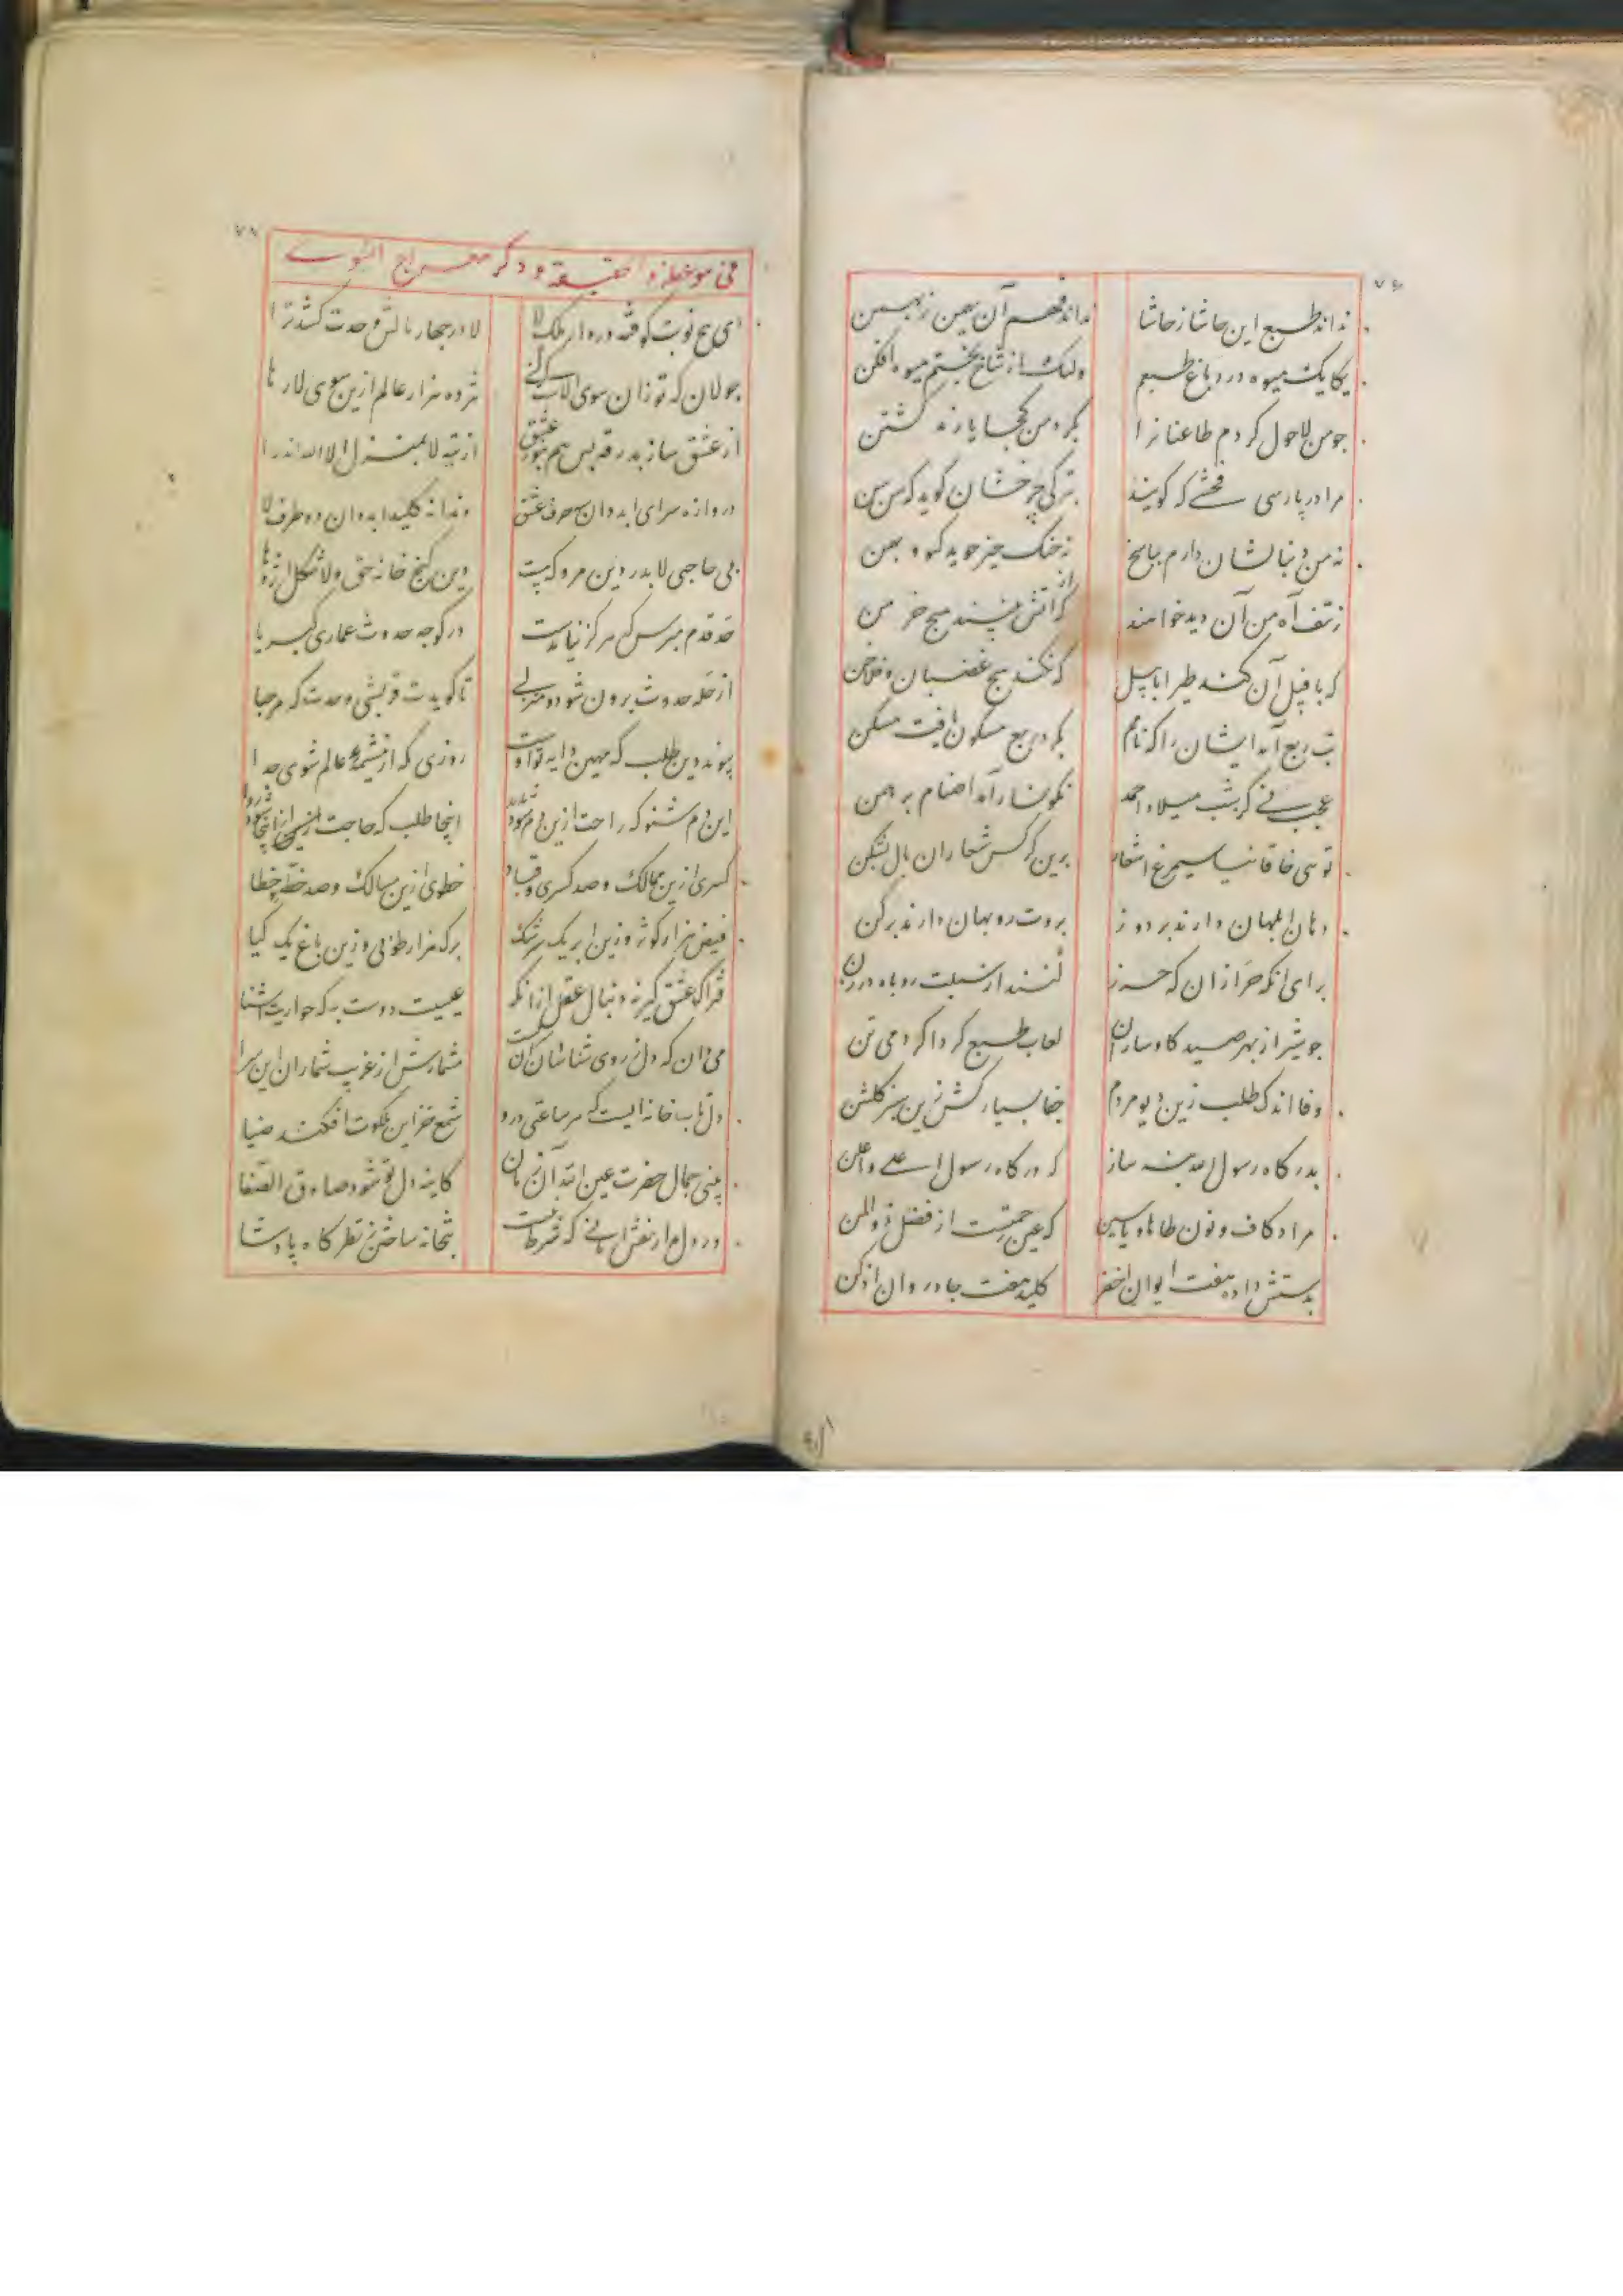 ۷۶
نداند طبع این حاشا ز حاشا نداند فهم آن بهمن ز بهمن
یکایک میوه در دباغ طبعم ولیک از شاخ بختم میوه افکن
جو من لاحول کردم طاعنانرا بکرد من کجا یارند کشتن
مرا در پارسی فحشی که کویند بترکی جرخشان کوید که سن سن
نه من دنبالشان دارم بپاسخ نه جنک حیز جوید کیو و بهمن
ز تف آه من آن دید خواهند که از آتش نبیند هیج خرمن
که با فیل آن کند طیر ابابیل که نکند هیج غضبان و فلاخن
تب ربع آمد ایشان را که نامم بکرد ربع مسکون یافت مسکن
عجب نی کر بشب میلاد احمد نکونسار آمد اصنام برهمن
تو سی خاقانیا سیمرغ اشعار برین کرکس شعاران بال بشکن
دهان ابلهان دارند بر دوز بروت روبهان دارند برکن
برای انکه خر ازان که خرز کنند از سبلت روباه درزن
جو شیر از بهر صید کاوساران لعاب طبع کرداکرد می تن
وفا اندک طلب زین دیو مردم جفا بسیار کش زین سبز کلشن
بدرکاه رسول الله پنه ساز که درکاه رسول اعلی و اعلن
مراد کاف و نون طاها و یاسین که عین رحمتست از فضل ذو المن
بدستش داد هفت ایوان اخضر کلید هفت جادروان ادکن
۷۸
فی موعظة و حقیقة و ذکر معراج النبوی
ای پنج نوبت کوفته در دار ملک لا لا در جهار بالش وحدت کشد ترا
جولان که تو زان سوی الاست کر کنی هژده هزار عالم ازین سوی لا رها
از عشق ساز بدرقه پس هم بنور عشق از تیه لا بمنزل الا الله اندر آ
دروازه سرای ابد دان سه حرف عشق دندانه کلید ابد دان دو حرف لا
بی حاجبی لا بدر دین مرو که هست دین کنج خانه حق و لا شکل اژدها
حد قدم مپرس که هرکز نیامدست در کوجه حدوث عماری کبریا
از حله حدوث برون شو دو منزلی تا کویدت قریشی وحدت که مرحبا
پیوند دین طلب که مهین دایه تو اوست روزی که از مشیمه عالم شوی جدا
این دم شنو که راحت ازین دم شود پدید اینجا طلب که حاجت ازینجا شود روا
کسری ازین ممالک و صد کسری و قباد خطوی ازین مسالک و صد خطه خطا
فیض هزار کوثر و زین ابر یک سرشک برک هزار طوبی و زین باغ یک کیا
فتراک عشق کیر نه دنبال عقل از آنکه عیسیت دوست به که حواریت آشنا
می دان که دل ز روی شناسان آن سراست مشمارش از غریب شماران این سرا
دل تاب خانه ایست که هر ساعتی درو شمع خزاین ملکوت افکند ضیا
بینی جمال حضرت عین الله آن زمان کاینه دل تو شود صادق الصفا
در دل مدار نقش امانی که شرط نیست بتخانه ساختن ز نظرکاه پادشا